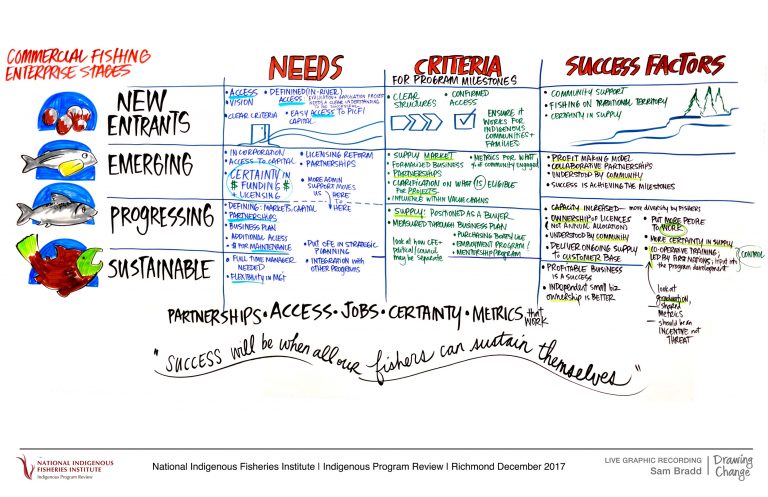 COMMERCIAL FISHING
ENTERPRISE STAGES
NEEDS
CRITERIA
FOR PROGRAM MILESTONES
SUCCESS FACTORS
NEW
ENTRANTS
• ACCESS
• VISION
• CLEAR CRITERIA
• DEFINED (IN-RIVER)
ACCESS
• EASY ACCESS TO PICFI
CAPITAL
• CLEAR
STRUCTURES
• CONFIRMED
ACCESS
• ENSURE IT
WORKS FOR
INDIGENOUS
COMMUNITIES +
FAMILIES
• COMMUNITY SUPPORT
• FISHING ON TRADITIONAL TERRITORY
• CERTAINTY IN SUPPLY
EMERGING
• INCORPORATION
• ACCESS TO CAPITAL
• CERTAINTY IN
$ FUNDING $
+ LICENSING
• LICENSING REFORM
• PARTNERSHIPS
• MORE ADMIN
SUPPORT MOVES
US HERE
TO HERE
• SUPPLY MARKET
• FORMALIZED BUSINESS
PARTNERSHIPS
• CLARIFICATION ON WHAT IS ELIGIBLE
FOR PROJECTS
• INFLUENCE WITHIN VALUE CHAINS
• METRICS FOR WHAT
% OF COMMUNITY ENGAGED
• PROFIT MAKING MODEL
• COLLABORATIVE PARTNERSHIPS
• UNDERSTOOD BY COMMUNITY
• SUCCESS IS ACHIEVING THE MILESTONES
PROGRESSING
• DEFINING: MARKETS, CAPITAL
PARTNERSHIPS
• BUSINESS PLAN
• ADDITIONAL ACCESS
• $ FOR MAINTENANCE
• PUT CFE IN STRATEGIC
PLANNING
• INTEGRATION WITH
OTHER PROGRAMS
• SUPPLY: POSITIONED AS A BUYER
• MEASURED THROUGH BUSINESS PLAN
• PURCHASING BOATS/LICE
• EMPLOYMENT PROGRAM!
• MENTORSHIP PROGRAM
look at how CFE +
political council
may be separate
• CAPACITY INCREASED — more diversity by fishers
• OWNERSHIP OF LICENCES
(NOT ANNUAL ALLOCATIONS)
• UNDERSTOOD BY COMMUNITY
• DELIVER ONGOING SUPPLY
TO CUSTOMER BASE
• PUT MORE PEOPLE
TO WORK
• MORE CERTAINTY IN SUPPLY
• CO-OPERATIVE TRAINING;
LED BY FIRST NATIONS; input into
the program development
CONTROL
SUSTAINABLE
• FULL TIME MANAGER
NEEDED
• FLEXIBILITY IN MGT
• PROFITABLE BUSINESS
IS A SUCCESS
• INDEPENDENT small biz
ownership is BETTER
— look at
graduation,
— shared
METRICS
— should be an
INCENTIVE NOT
THREAT
PARTNERSHIPS • ACCESS • JOBS • CERTAINTY • METRICS that
WORK
"SUCCESS will be when all our fishers can sustain themselves"
NATIONAL INDIGENOUS
FISHERIES INSTITUTE
Indigenous Program Review
National Indigenous Fisheries Institute | Indigenous Program Review | Richmond December 2017
LIVE GRAPHIC RECORDING
Sam Bradd
Drawing
Change